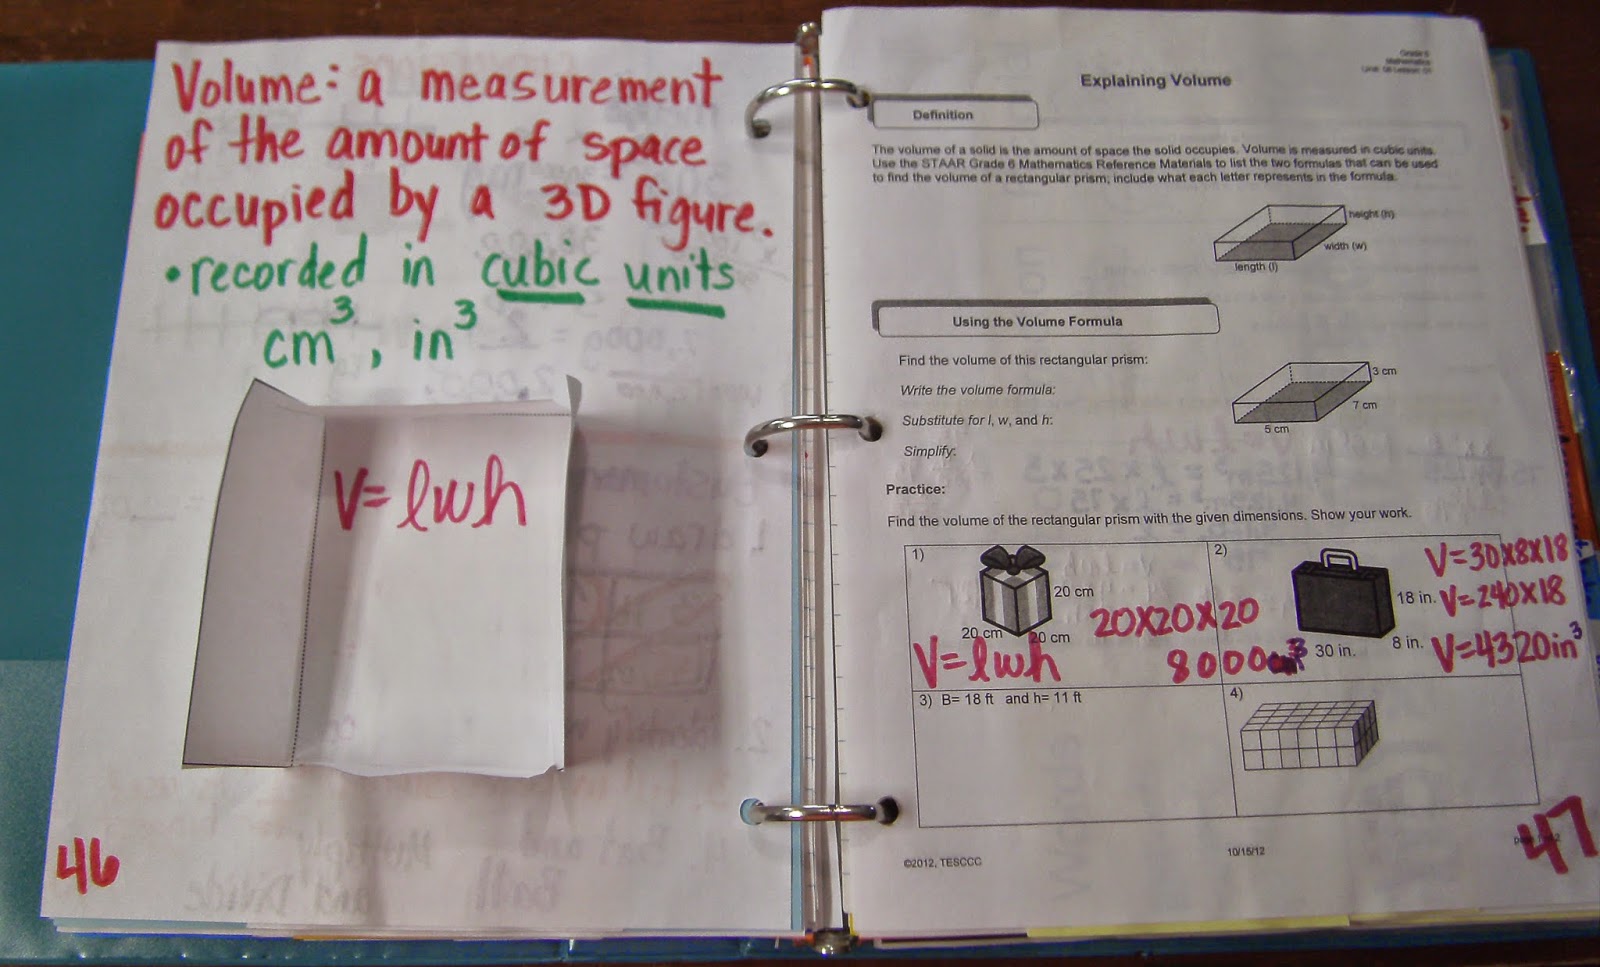 Volume: a measurement
of the amount of space
occupied by a 3D figure.
• recorded in cubic units
cm³, in³
V= lwh
46
Grade 6
Mathematics
Unit: 08 Lesson: 01
Explaining Volume
Definition
The volume of a solid is the amount of space the solid occupies. Volume is measured in cubic units.
Use the STAAR Grade 6 Mathematics Reference Materials to list the two formulas that can be used
to find the volume of a rectangular prism; include what each letter represents in the formula.
height (h)
width (w)
length (l)
Using the Volume Formula
Find the volume of this rectangular prism:
Write the volume formula:
Substitute for l, w, and h:
Simplify:
3 cm
7 cm
5 cm
Practice:
Find the volume of the rectangular prism with the given dimensions. Show your work.
1)
20 cm
20 cm
20 cm
20x20x20
V= lwh
8000cm³
2)
18 in.
8 in.
30 in.
V=30x8x18
V=240x18
V=4320in³
3) B= 18 ft and h= 11 ft
4)
©2012, TESCCC
10/15/12
47